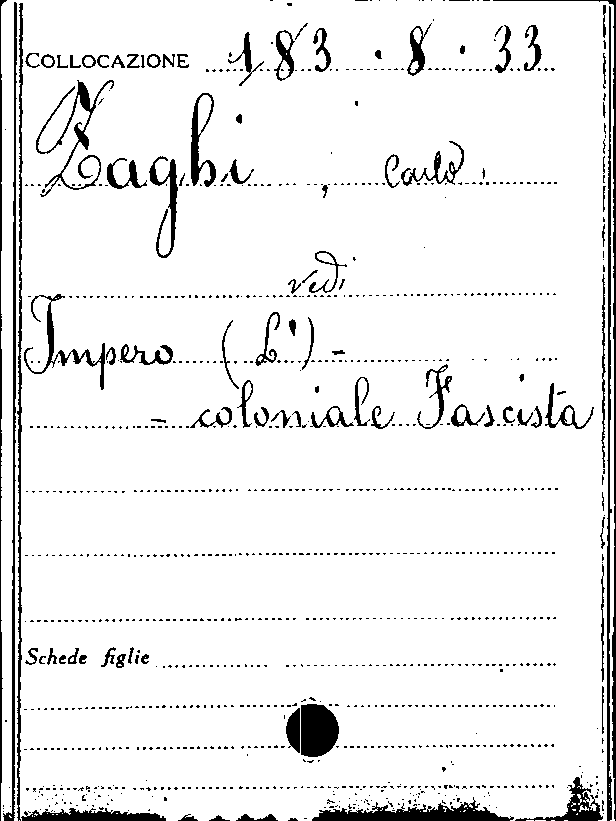 COLLOCAZIONE 183.8.33
Zaghi, Carlo.
vedi
Impero (L') -
- coloniale Fascista
Schede figlie